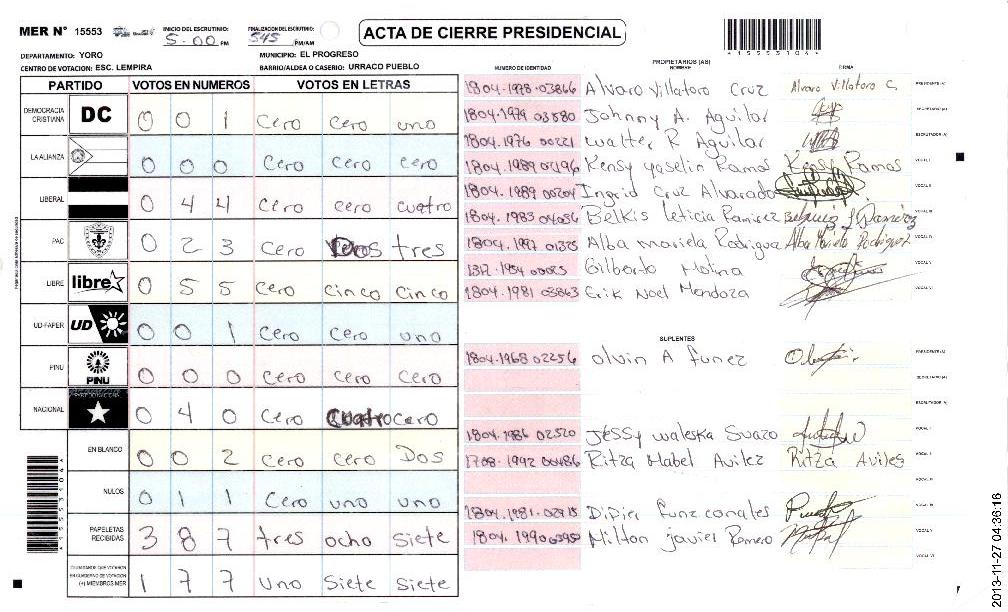 MER N° 15553
INICIO DEL ESCRUTINIO: 5-00 PM
FINALIZACION DEL ESCRUTINIO: 545 PM/AM
ACTA DE CIERRE PRESIDENCIAL
DEPARTAMENTO: YORO
MUNICIPIO: EL PROGRESO
CENTRO DE VOTACION: ESC. LEMPIRA
BARRIO/ALDEA O CASERIO: URRACO PUEBLO
PARTIDO VOTOS EN NUMEROS VOTOS EN LETRAS
DEMOCRACIA CRISTIANA DC 0 0 1 Cero cero uno
LA ALIANZA 0 0 0 Cero cero cero
LIBERAL 0 4 4 Cero cero cuatro
PAC 0 2 3 Cero Dos tres
LIBRE libre 0 5 5 Cero Cinco Cinco
UD-FAPER UD 0 0 1 Cero Cero uno
PINU PINU 0 0 0 Cero Cero Cero
NACIONAL 0 4 0 Cero Cuatro cero
EN BLANCO 0 0 2 Cero cero Dos
NULOS 0 1 1 Cero uno uno
PAPELETAS RECIBIDAS 3 8 7 tres ocho siete
CIUDADANOS QUE VOTARON EN CUADERNO DE VOTACION (+) MIEMBROS MER 1 7 7 Uno Siete Siete
PROPIETARIOS (AS)
NUMERO DE IDENTIDAD NOMBRE FIRMA
1804-1978-03866 Alvaro Villatoro Cruz Alvaro Villatoro C. PRESIDENTE (A)
1804-1979 03580 Johnny A. Aguilar SECRETARIO (A)
1804-1976 00221 Walter R Aguilar ESCRUTADOR (A)
Kensy Yaselin Ramos Kensy Ramos VOCAL I
1804-1989 00204 Ingrid Cruz Alvarado VOCAL II
Belkis Leticia Ramirez VOCAL III
1804-1997 01325 Alba Mariela Rodriguez VOCAL IV
Gilberto Molina VOCAL V
1804-1981 03863 Erik Noel Mendoza VOCAL VI
SUPLENTES
1804-1968 02256 Olvin A Funez PRESIDENTE (A)
SECRETARIO (A)
ESCRUTADOR (A)
1804-1986 02520 Jessy Waleska Suazo VOCAL I
1708-1992 00486 Ritza Mabel Avilez Ritza Aviles VOCAL II
VOCAL III
VOCAL IV
Milton Javier Romero VOCAL V
VOCAL VI
2013-11-27 04:36:16